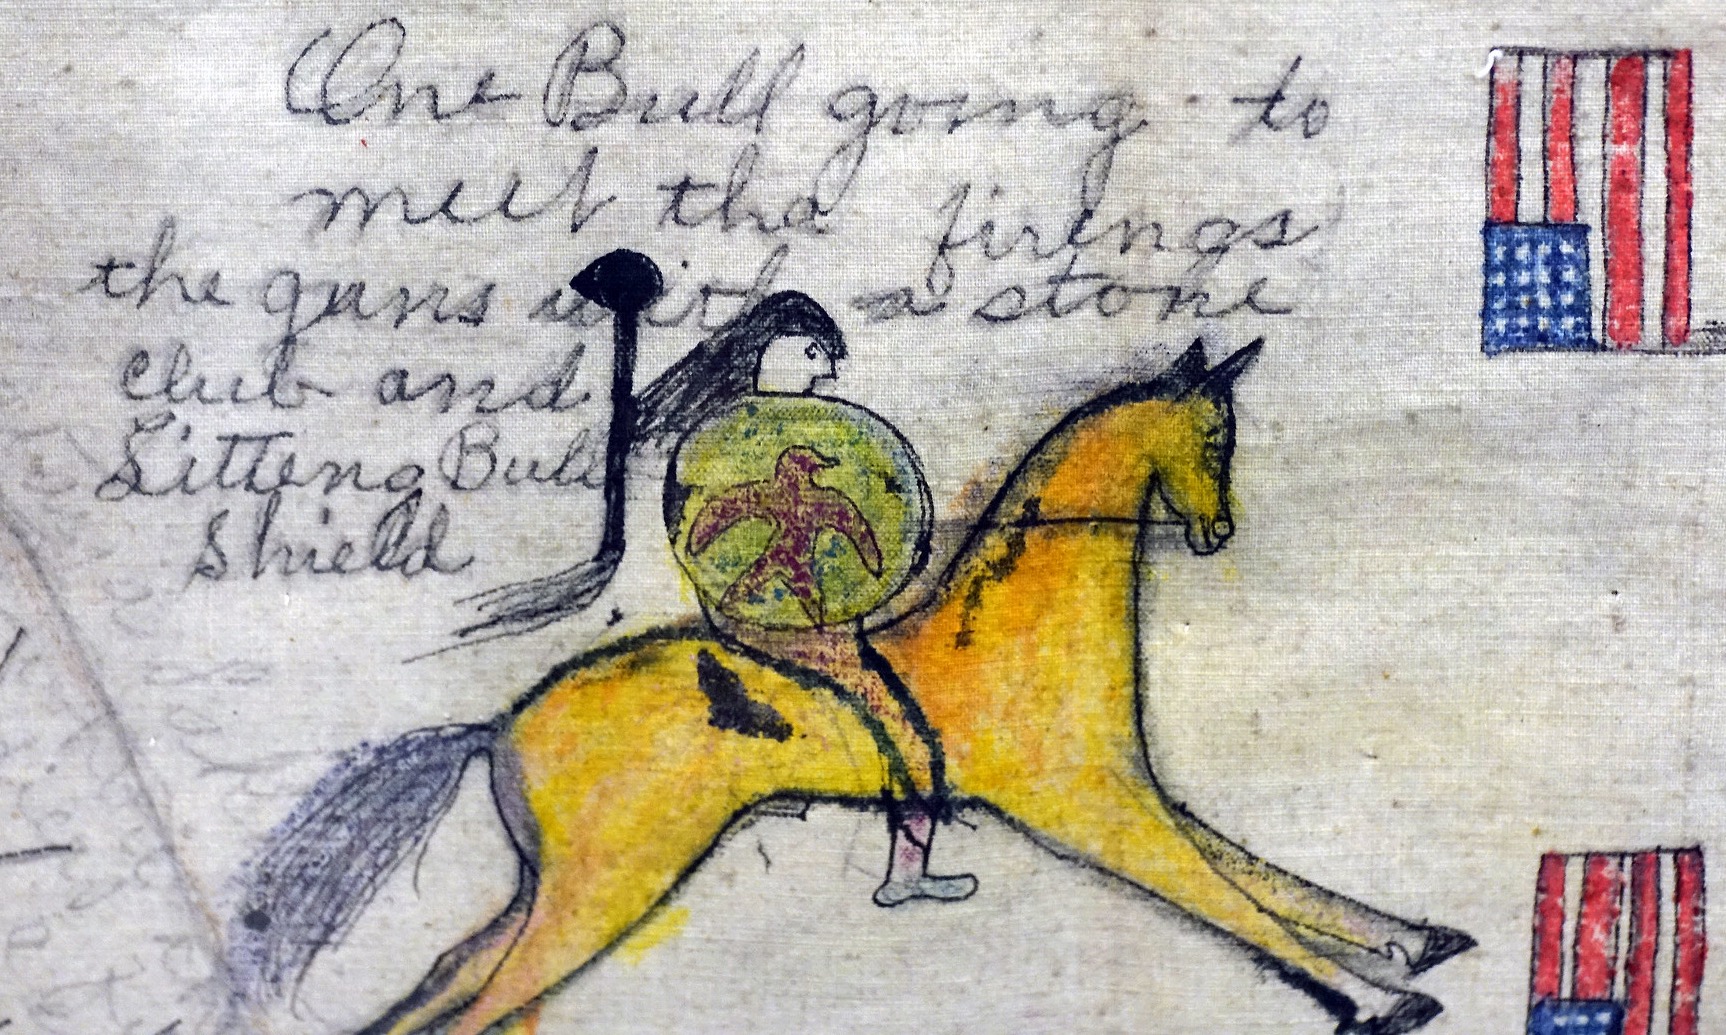 One Bull going to
meet the firings
the guns with a stone
club and
Sitting Bull
shield